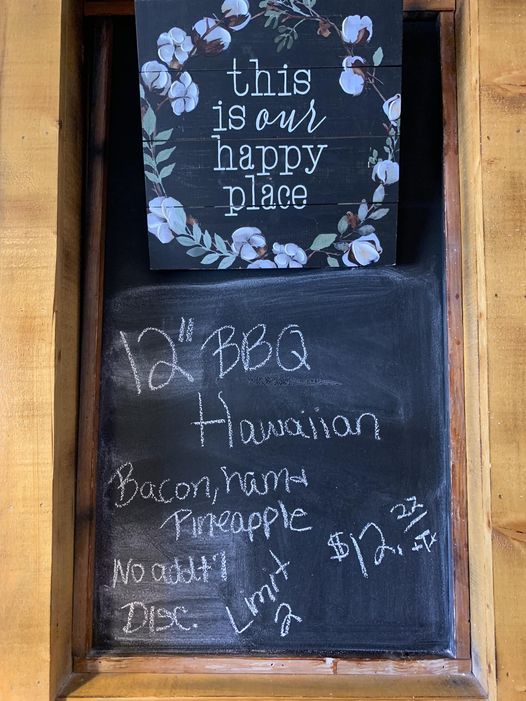 this
is our
happy
place
12" BBQ
Hawaiian
Bacon, ham &
Pineapple
$12.22 +Tx
No addt'l
Disc.
Limit
2